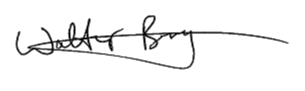 Walter Bry